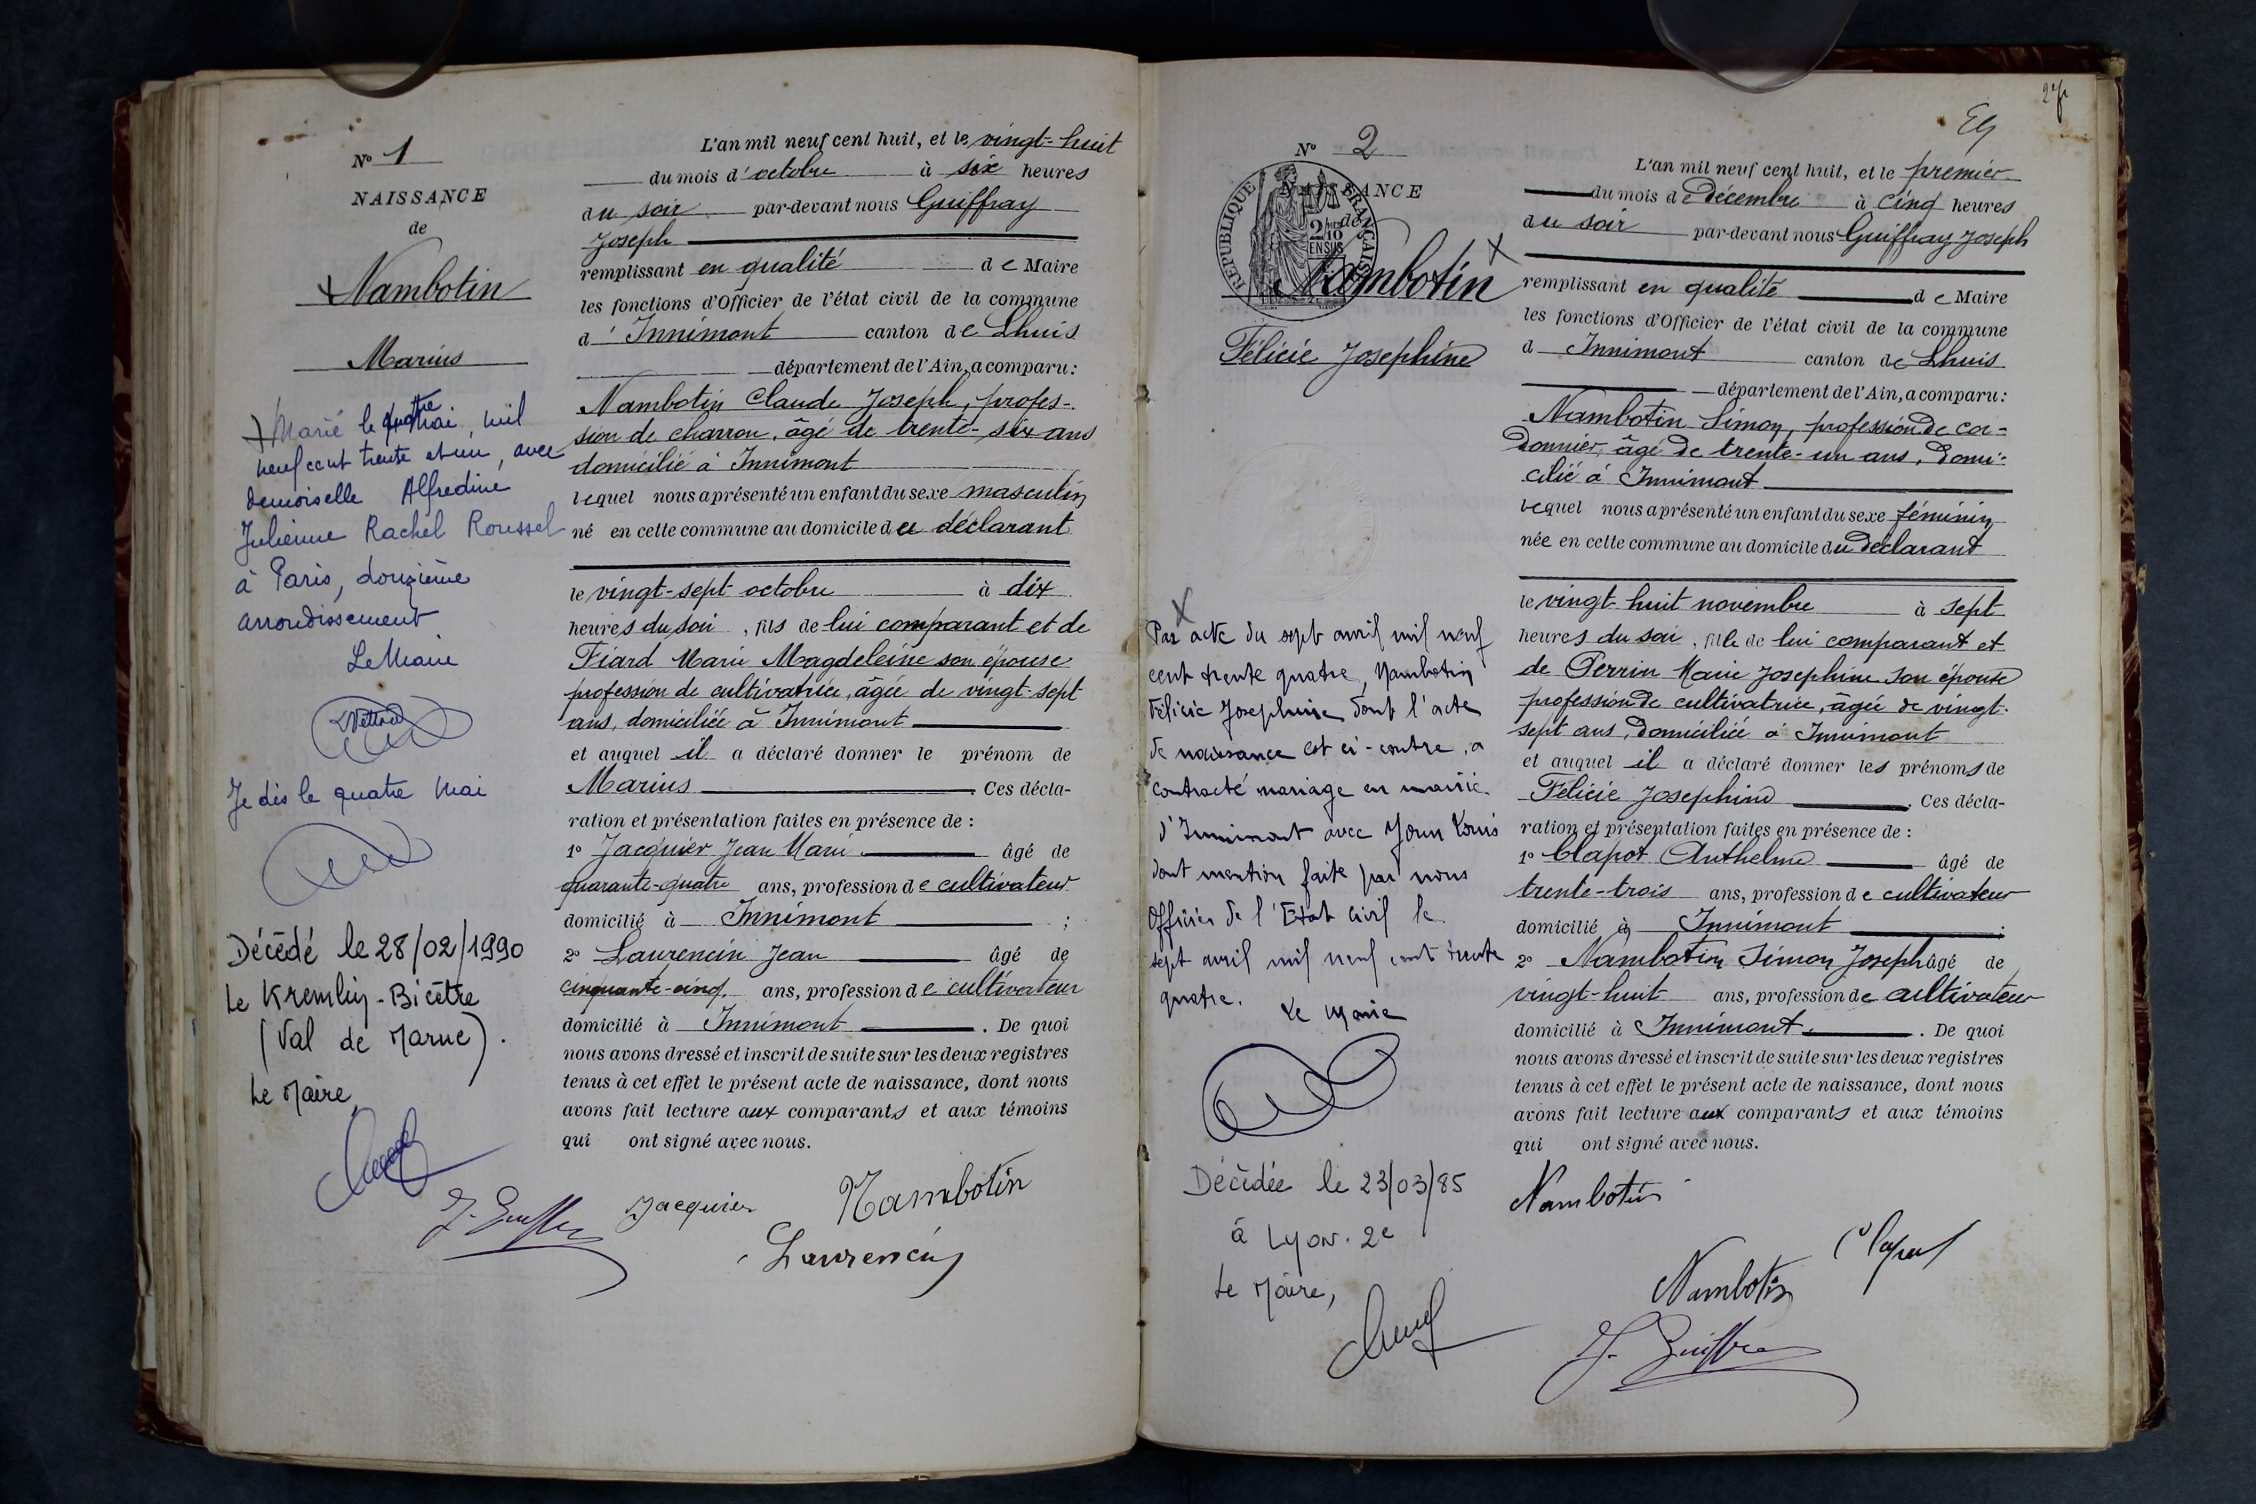 N° 1
NAISSANCE
de
Nambotin
Marius
Marié le quatre mai, mil
neuf cent trente et un, avec
demoiselle Alfredine
Julienne Rachel Roussel
à Paris, douzième
arrondissement
Le Maire
Je dis le quatre mai
Décédé le 28/02/1990
Le Kremlin-Bicêtre
(Val de Marne).
Le Maire,
L'an mil neuf cent huit, et le vingt-huit
du mois d'octobre à six heures
du soir par-devant nous Guiffray
Joseph
remplissant en qualité de Maire
les fonctions d'Officier de l'état civil de la commune
d'Innimont canton de Lhuis
département de l'Ain, a comparu:
Nambotin Claude Joseph, profes-
sion de charron, âgé de trente-six ans
domicilié à Innimont
lequel nous a présenté un enfant du sexe masculin
né en cette commune au domicile du déclarant
le vingt-sept octobre à dix
heures du soir, fils de lui comparant et de
Fiard Marie Magdeleine son épouse
profession de cultivatrice, âgée de vingt-sept
ans, domiciliée à Innimont
et auquel il a déclaré donner le prénom de
Marius. Ces décla-
ration et présentation faites en présence de :
1° Jacquier Jean Marie âgé de
quarante-quatre ans, profession de cultivateur
domicilié à Innimont ;
2° Laurencin Jean âgé de
cinquante-cinq ans, profession de cultivateur
domicilié à Innimont. De quoi
nous avons dressé et inscrit de suite sur les deux registres
tenus à cet effet le présent acte de naissance, dont nous
avons fait lecture aux comparants et aux témoins
qui ont signé avec nous.
Jacquier Nambotin
Laurencin
Eg
N° 2
NAISSANCE
de
REPUBLIQUE FRANÇAISE
2/10
EN SUS
Nambotin
Félicie Josephine
Par acte du sept avril mil neuf
cent trente quatre, Nambotin
Félicie Josephine dont l'acte
de naissance est ci-contre, a
contracté mariage en mairie
d'Innimont avec Louis
dont mention faite par nous
Officier de l'Etat Civil le
sept avril mil neuf cent trente
quatre. Le Maire
Décédée le 23/03/85
à Lyon. 2e
Le Maire,
L'an mil neuf cent huit, et le premier
du mois de Décembre à cinq heures
du soir par-devant nous Guiffray Joseph
remplissant en qualité de Maire
les fonctions d'Officier de l'état civil de la commune
d Innimont canton de Lhuis
département de l'Ain, a comparu:
Nambotin Simon, profession de cor-
donnier, âgé de trente-un ans, domi-
cilié à Innimont
lequel nous a présenté un enfant du sexe féminin
née en cette commune au domicile du déclarant
le vingt-huit novembre à sept
heures du soir, fille de lui comparant et
de Perrin Marie Josephine son épouse
profession de cultivatrice, âgée de vingt-
sept ans, domiciliée à Innimont
et auquel il a déclaré donner les prénoms de
Félicie Josephine. Ces décla-
ration et présentation faites en présence de :
1° Clapot Anthelme âgé de
trente-trois ans, profession de cultivateur
domicilié à Innimont ;
2° Nambotin Simon Joseph âgé de
vingt-huit ans, profession de cultivateur
domicilié à Innimont. De quoi
nous avons dressé et inscrit de suite sur les deux registres
tenus à cet effet le présent acte de naissance, dont nous
avons fait lecture aux comparants et aux témoins
qui ont signé avec nous.
Nambotin
Clapot
Nambotin